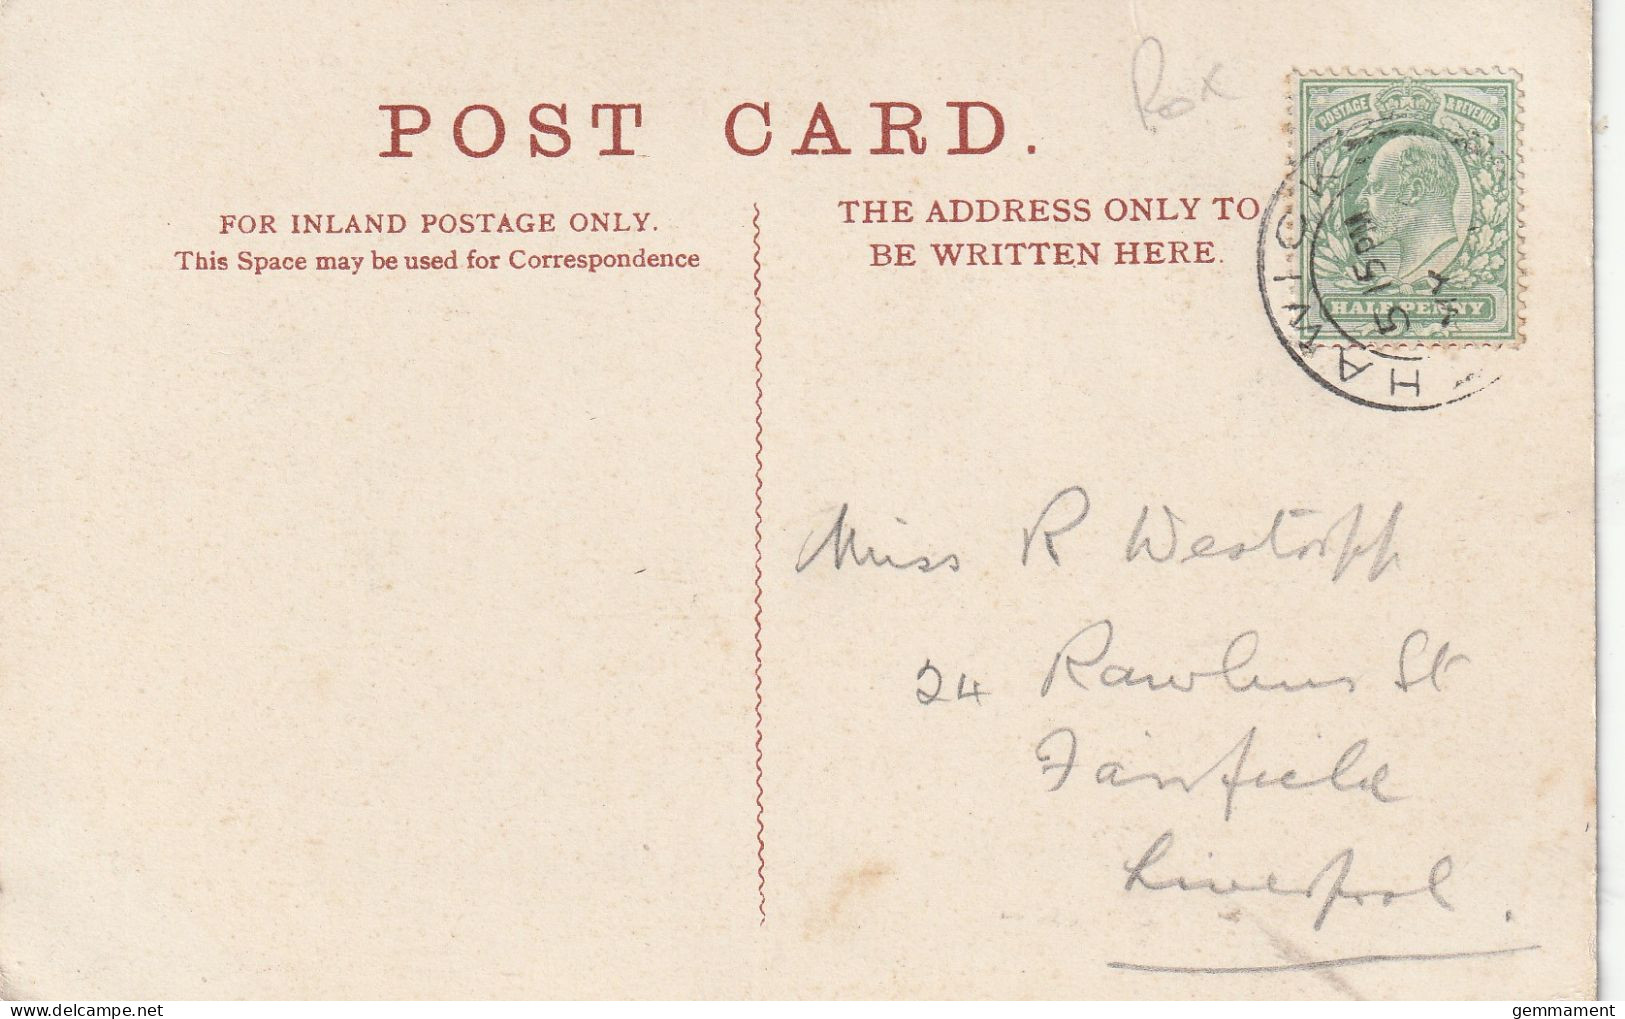 POST CARD.
Rox
FOR INLAND POSTAGE ONLY.
This Space may be used for Correspondence
THE ADDRESS ONLY TO
BE WRITTEN HERE.
POSTAGE & REVENUE
HALF PENNY
HAWICK
5 15 PM
Miss R Westropp
24 Rawlins St
Fairfield
Liverpool.
gemmament